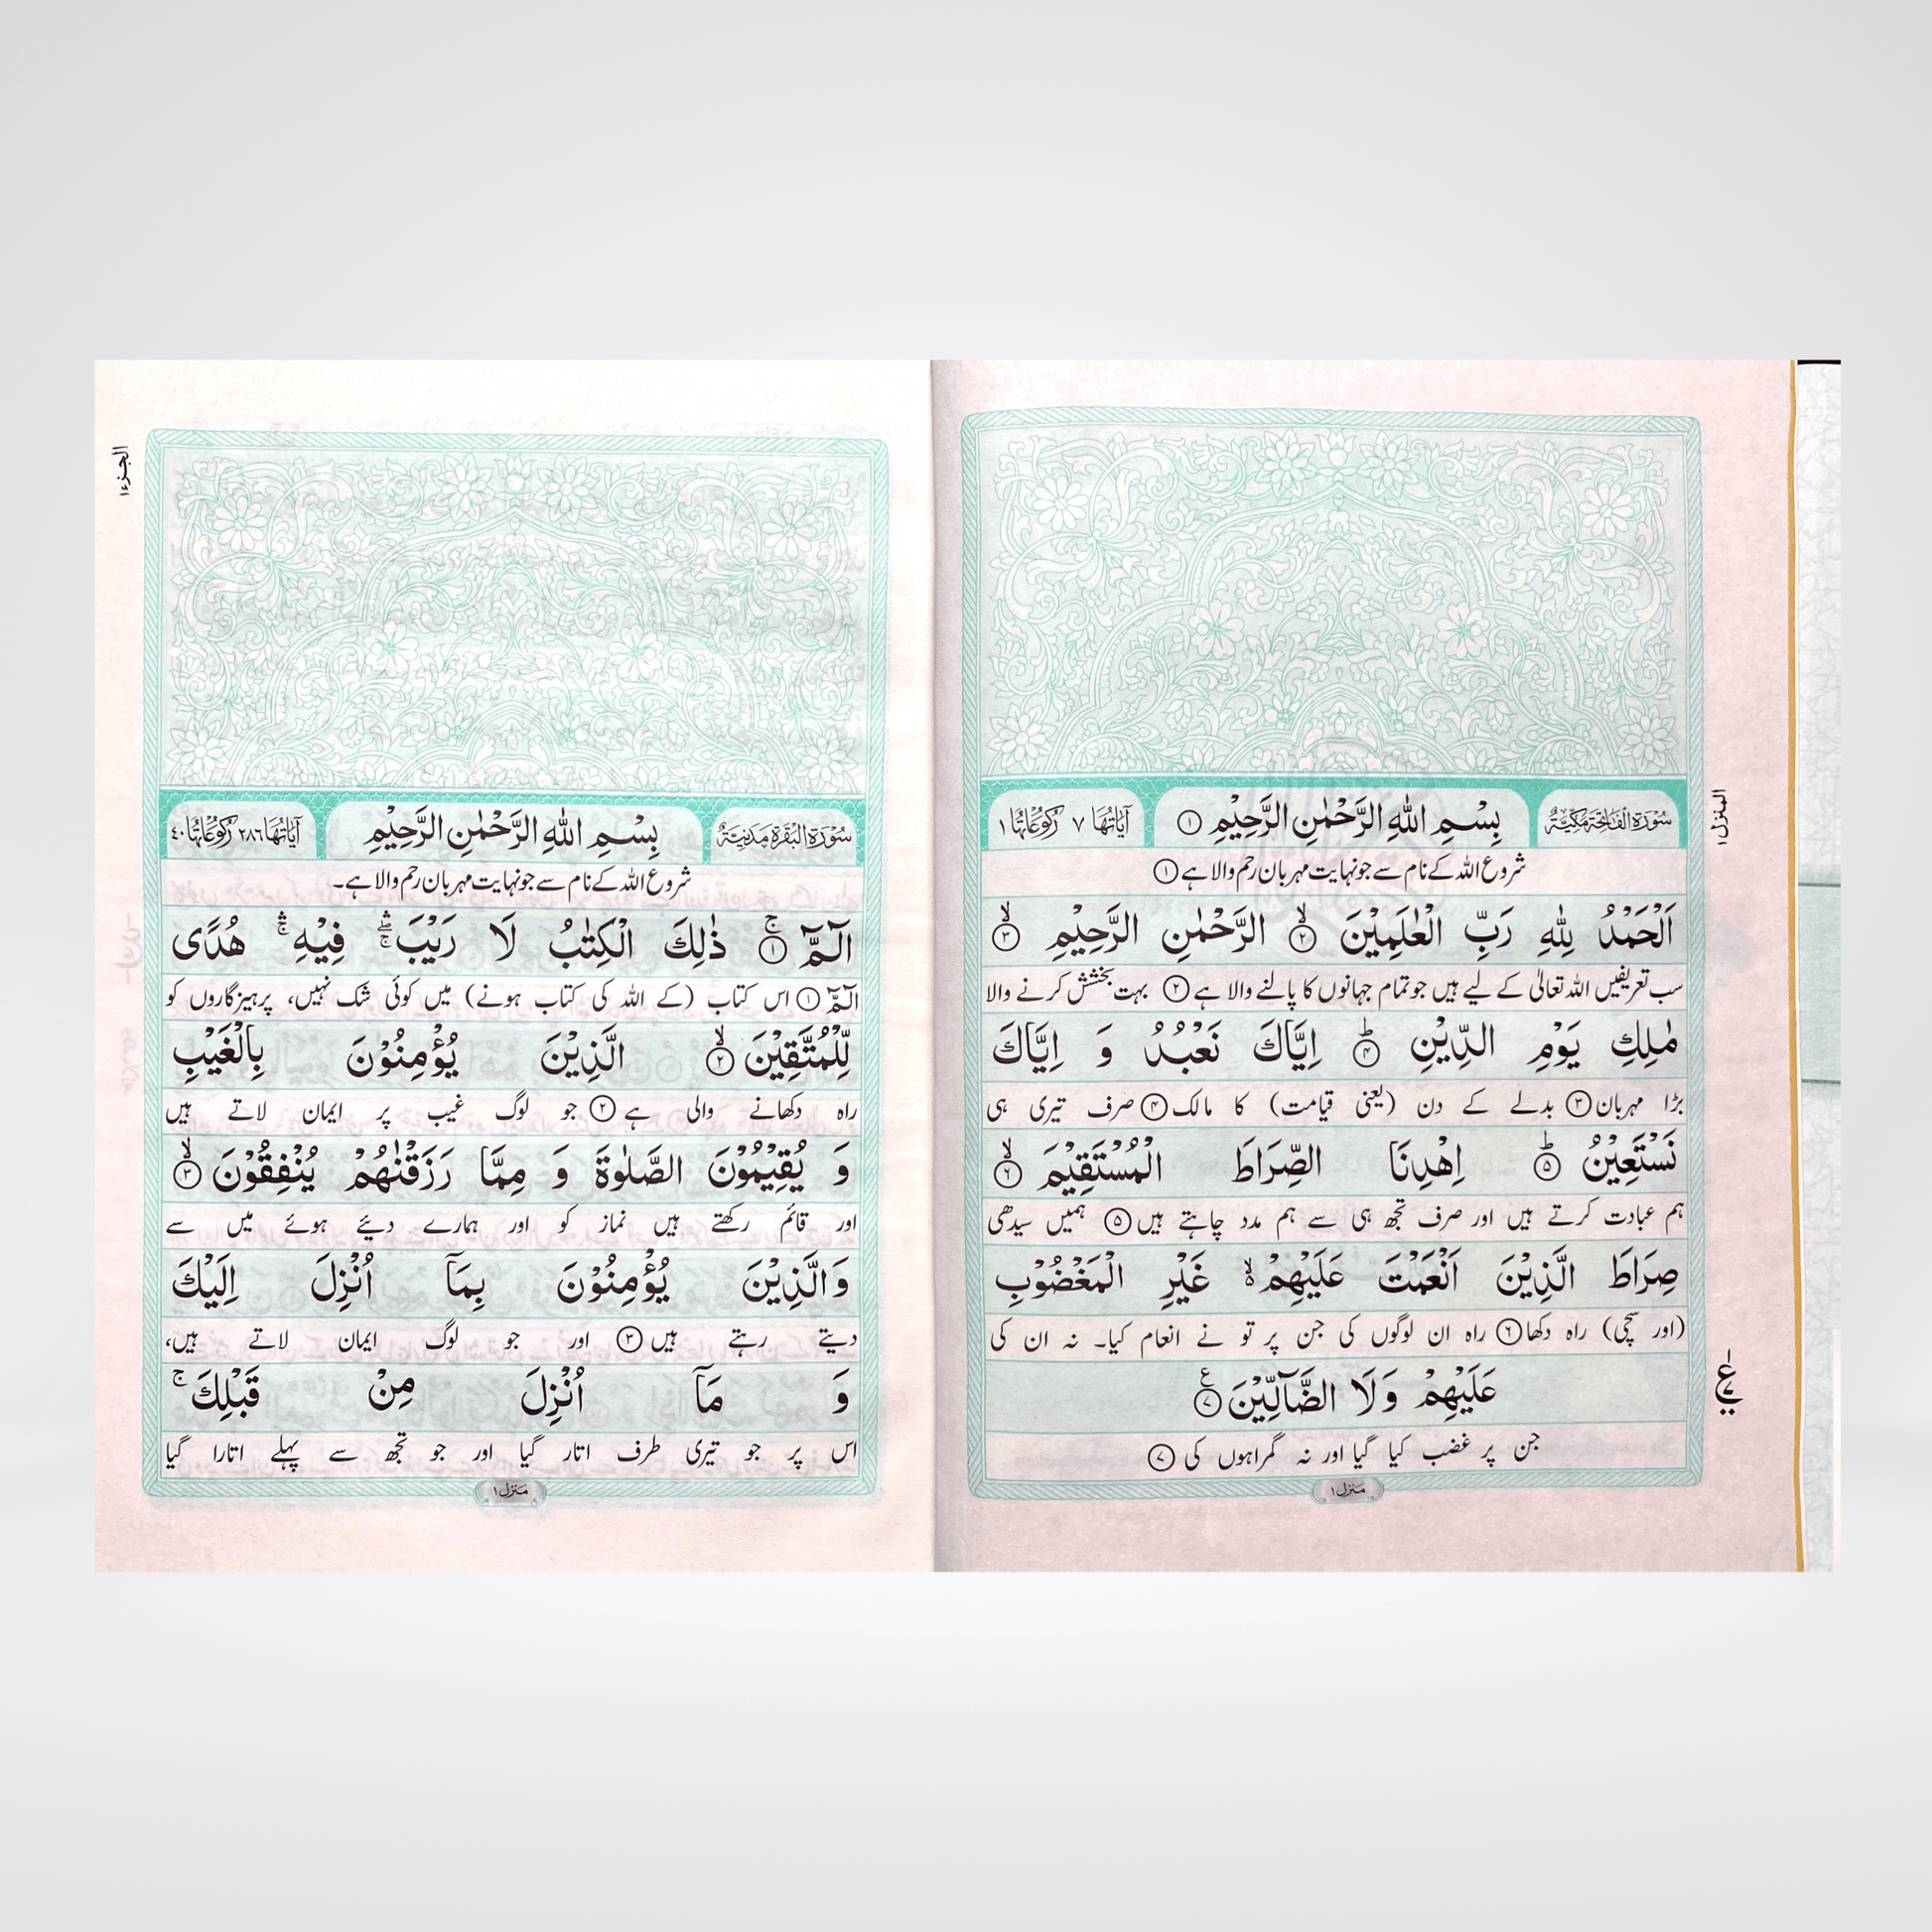 المنزل۱
سُوْرَةُ الْفَاتِحَةِ مَكِّيَّةٌ
بِسْمِ اللهِ الرَّحْمٰنِ الرَّحِيْمِ ۝۱
اٰيَاتُهَا ٧ رُكُوْعَاتُهَا ١
شروع اللہ کے نام سے جو نہایت مہربان رحم والا ہے ۝۱
اَلْحَمْدُ لِلّٰهِ رَبِّ الْعٰلَمِيْنَ ۝۲ۙ الرَّحْمٰنِ الرَّحِيْمِ ۝۳ۙ
سب تعریفیں اللہ تعالیٰ کے لیے ہیں جو تمام جہانوں کا پالنے والا ہے ۝۲ بہت بخشش کرنے والا
مٰلِكِ يَوْمِ الدِّيْنِ ۝۴ؕ اِيَّاكَ نَعْبُدُ وَ اِيَّاكَ
بڑا مہربان ۝۳ بدلے کے دن (یعنی قیامت) کا مالک ۝۴ صرف تیری ہی
نَسْتَعِيْنُ ۝۵ؕ اِهْدِنَا الصِّرَاطَ الْمُسْتَقِيْمَ ۝۶ۙ
ہم عبادت کرتے ہیں اور صرف تجھ ہی سے ہم مدد چاہتے ہیں ۝۵ ہمیں سیدھی
صِرَاطَ الَّذِيْنَ اَنْعَمْتَ عَلَيْهِمْ ۙ۬ غَيْرِ الْمَغْضُوْبِ
(اور سچی) راہ دکھا ۝۶ راہ ان لوگوں کی جن پر تو نے انعام کیا۔ نہ ان کی
عَلَيْهِمْ وَلَا الضَّآلِّيْنَ ۝۷ع
جن پر غضب کیا گیا اور نہ گمراہوں کی ۝۷
منزل۱
الجزء۱
سُوْرَةُ الْبَقَرَةِ مَدَنِيَّةٌ
بِسْمِ اللهِ الرَّحْمٰنِ الرَّحِيْمِ
اٰيَاتُهَا ٢٨٦ رُكُوْعَاتُهَا ٤٠
شروع اللہ کے نام سے جو نہایت مہربان رحم والا ہے۔
الٓمّٓ ۝۱ۚ ذٰلِكَ الْكِتٰبُ لَا رَيْبَ ۛۖۚ فِيْهِ ۛۚ هُدًى
الٓمّٓ ۝۱ اس کتاب (کے اللہ کی کتاب ہونے) میں کوئی شک نہیں، پرہیزگاروں کو
لِّلْمُتَّقِيْنَ ۝۲ۙ الَّذِيْنَ يُؤْمِنُوْنَ بِالْغَيْبِ
راہ دکھانے والی ہے ۝۲ جو لوگ غیب پر ایمان لاتے ہیں
وَ يُقِيْمُوْنَ الصَّلٰوةَ وَ مِمَّا رَزَقْنٰهُمْ يُنْفِقُوْنَ ۝۳ۙ
اور قائم رکھتے ہیں نماز کو اور ہمارے دیئے ہوئے میں سے
وَالَّذِيْنَ يُؤْمِنُوْنَ بِمَآ اُنْزِلَ اِلَيْكَ
دیتے رہتے ہیں ۝۳ اور جو لوگ ایمان لاتے ہیں،
وَ مَآ اُنْزِلَ مِنْ قَبْلِكَ ۚ
اس پر جو تیری طرف اتار گیا اور جو تجھ سے پہلے اتارا گیا
منزل۱